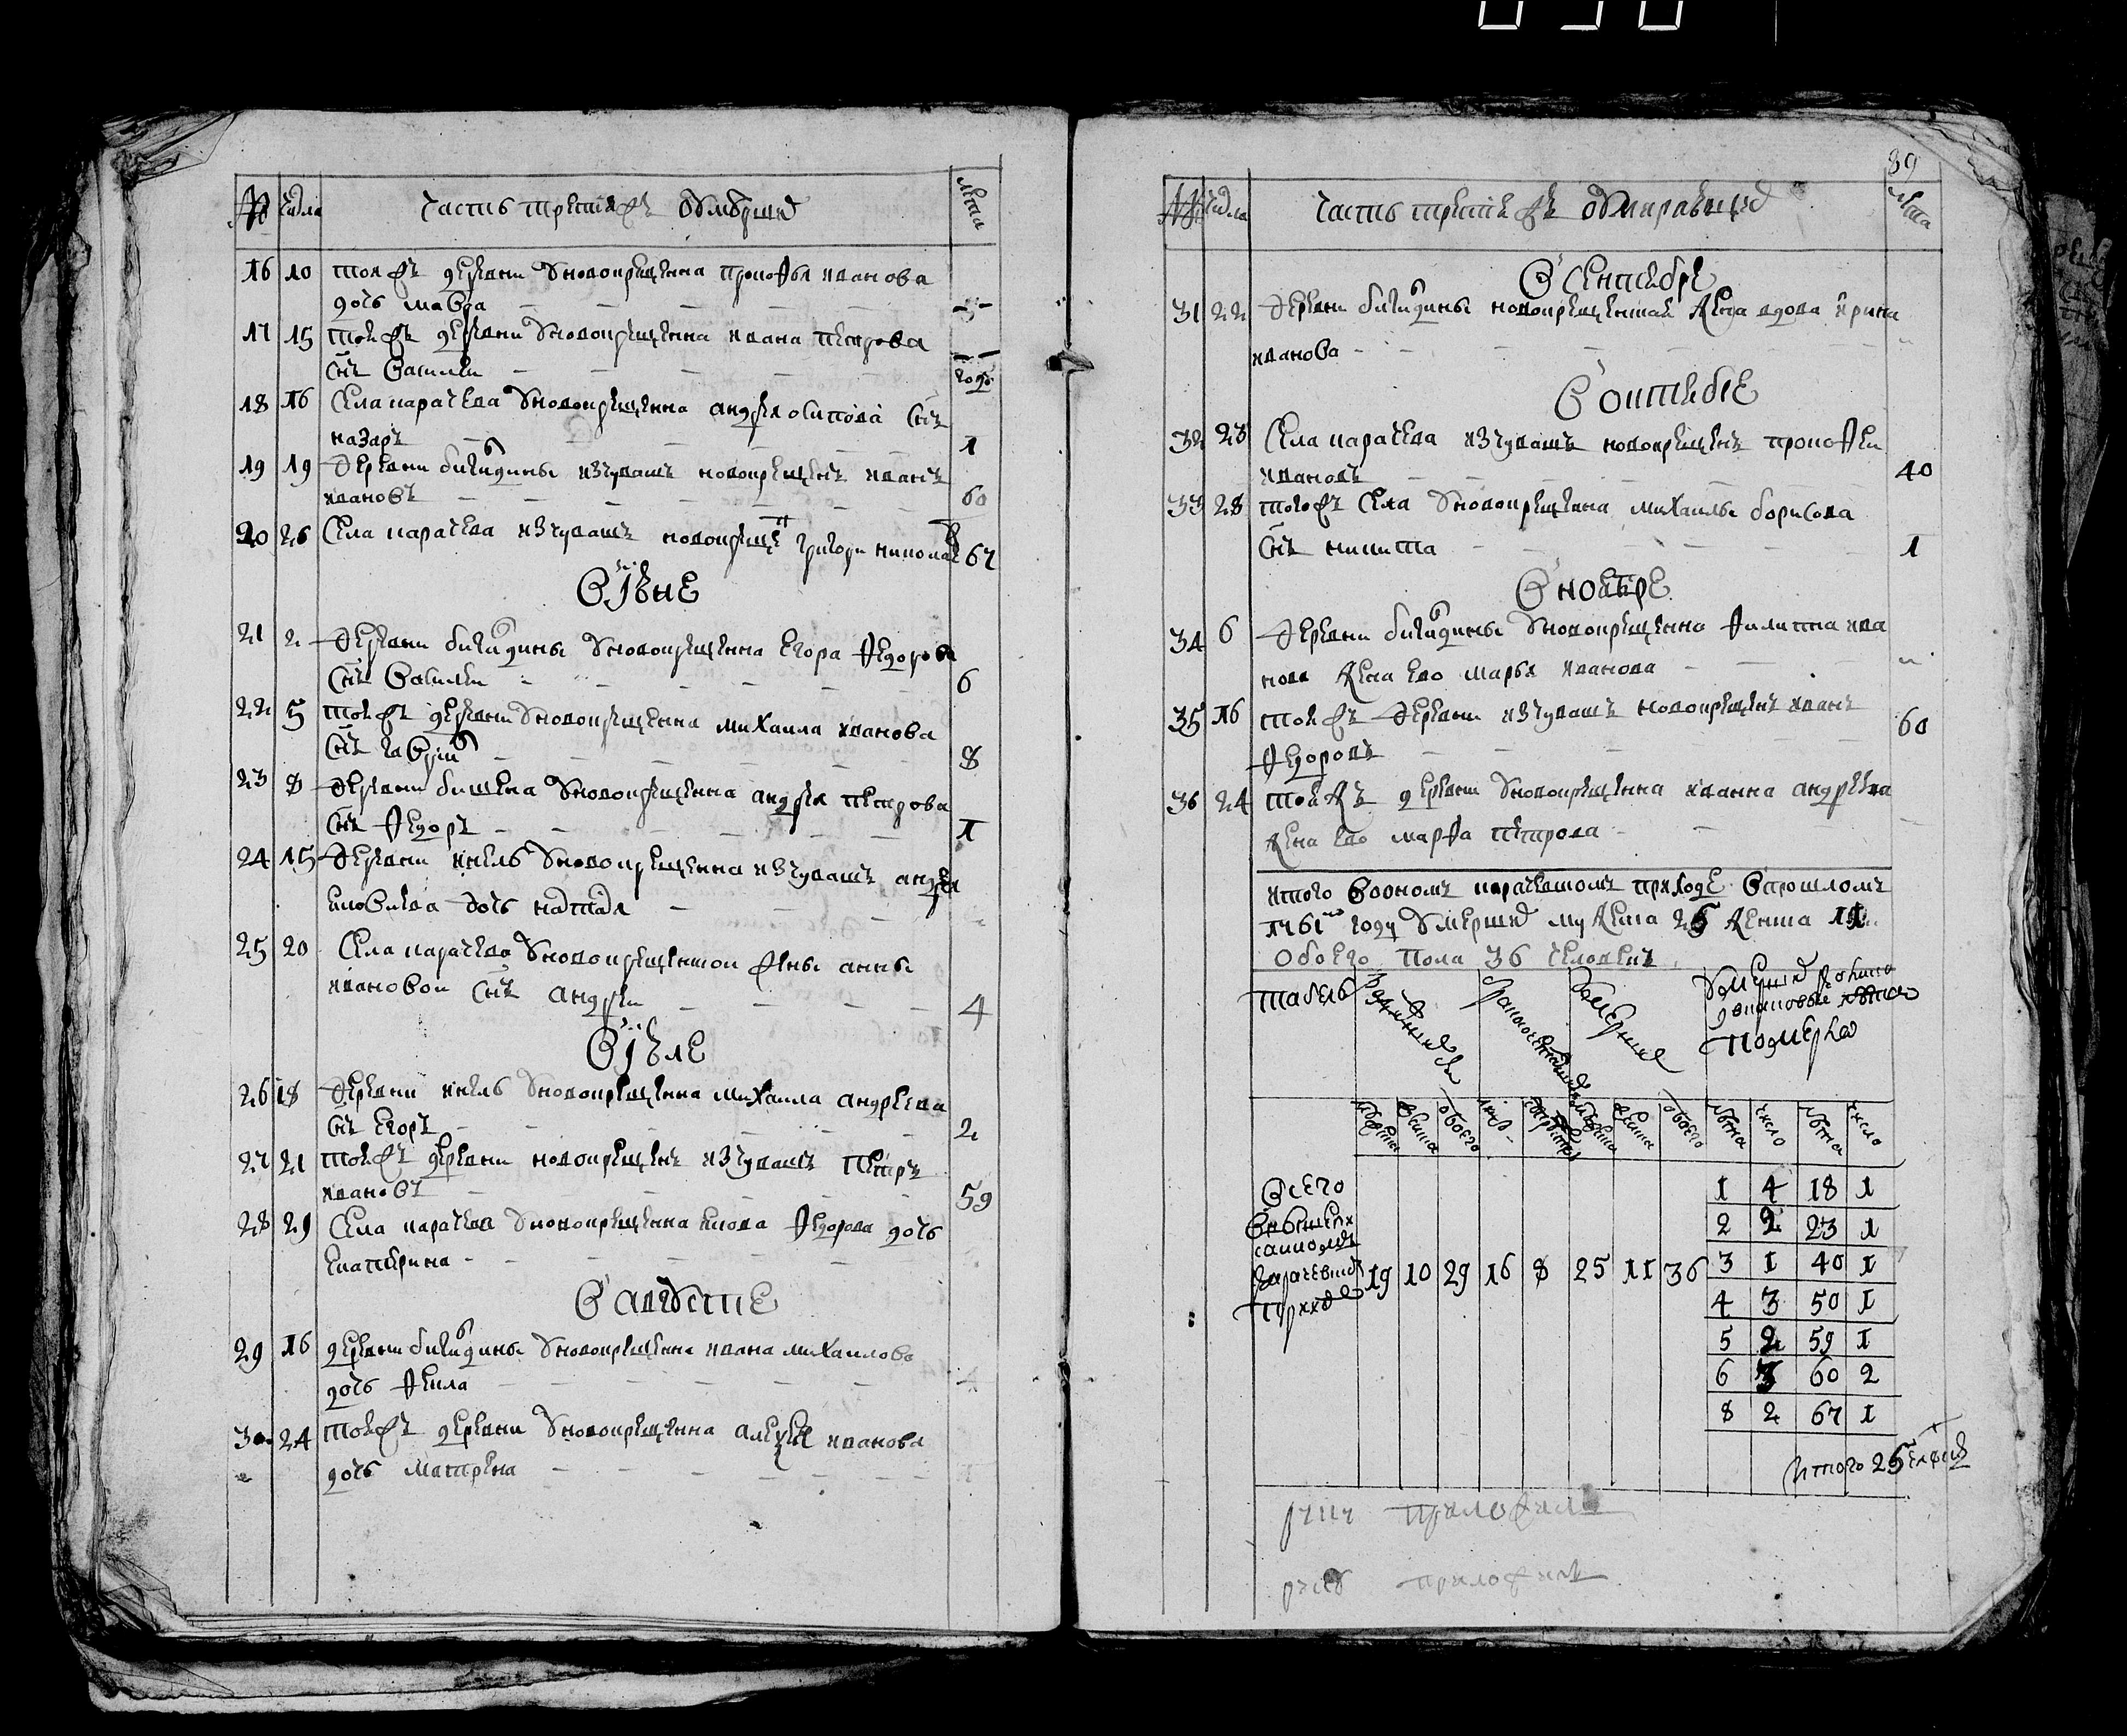 № числа Часть третия ѡ умѣршихъ лета
16 10 тоя ж деревни у новокрещена прокофья иванова
дочь мавра 5
17 15 тоя ж деревни у новокрещена ивана петрова
снъ василеи 1 годъ
18 16 села карачева у новокрещена андрея осипова снъ
назаръ 1
19 19 деревни бигилдины изчувашъ новокрещенъ иванъ
ивановъ 60
20 26 села карачева изчувашъ новокрещенъ григореи николаевъ 67
В июне
21 2 деревни бигилдины у новокрещена егора федорова
снъ василеи 6
22 5 тоя ж деревни у новокрещена михаила иванова
снъ гаврила 8
23 8 деревни у новокрещена андрея петрова
снъ федоръ 1
24 15 деревни кнель у новокрещена изчувашъ андрея
яковлева дочь наталя
25 20 села карачева у новокрещенои жены анны
ивановои снъ андреи 4
В июле
26 18 деревни кнель у новокрещена михаила андреева
снъ егоръ 2
27 21 тоя ж деревни новокрещенъ изчувашъ петръ
ивановъ 59
28 29 села карачева у новокрещена якова федорова дочь
екатерина
В августе
29 16 деревни бигилдины у новокрещена ивана михаилова
дочь фекла
30 24 тоя ж деревни у новокрещена алексея иванова
дочь матрена
39
№ числа Часть третия ѡ умиравшихъ лета
В сентебре
31 22 деревни бигилдины новокрещенная жена вдова ирина
иванова
В октебре
32 23 села карачева изчувашъ новокрещенъ прокофеи
ивановъ 40
33 28 того ж села у новокрещена михаилы борисова
снъ никита 1
В ноебре
34 6 деревни бигилдины у новокрещена филиппа ива
нова жена ево марья иванова
35 16 тоя ж деревни изчувашъ новокрещенъ иванъ
федоровъ 60
36 24 тоя ж деревни у новокрещена ивана андреева
жена ево марфа петрова
итого в ономъ карачевскомъ приходе в прошломъ
1761 году умершихъ мужеска 25 женска 11
обоего пола 36 человекъ
табель умершие
померло
мужеска женска обоего мужеска женска обоего лѣта число лѣта число
Всего
карачевскомъ
приходе
19 10 29 16 8 25 11 36
1 4 18 1
2 2 23 1
3 1 40 1
4 3 50 1
5 2 59 1
6 3 60 2
8 2 67 1
итого 25
руку приложилъ
руку приложилъ